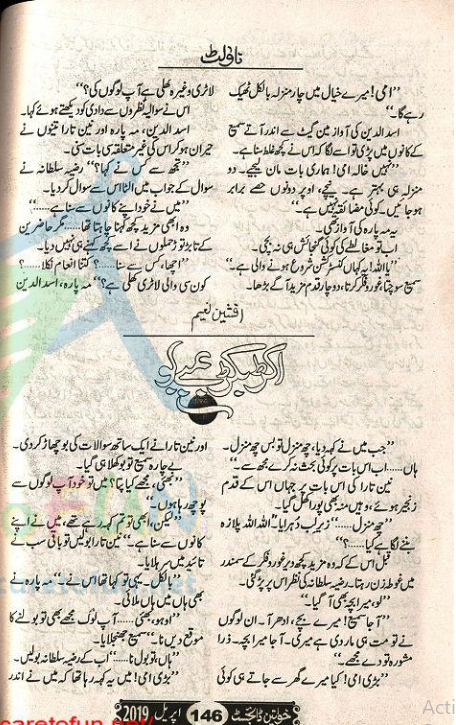 ناولٹ
’’امی! میرے خیال میں چار منزلہ بالکل ٹھیک
رہے گا۔‘‘
اسد الدین کی آواز مین گیٹ سے اندر آتے سمیع
کے کانوں میں پڑی تو اسے لگا کہ اس نے کچھ غلط سنا ہے۔
’’نہیں خالہ امی! ہماری بات مان لیجیے۔ دو
منزلہ ہی بہتر ہے۔ نیچے، اوپر دونوں حصے برابر
ہو جائیں۔ کوئی مضائقہ نہیں ہے۔‘‘
یہ مہ پارہ کی آواز تھی۔
اب تو مغالطے کی کوئی گنجائش ہی نہ بچی۔
’’یااللہ! یہ کہاں کنسٹرکشن شروع ہونے والی ہے۔‘‘
سمیع سوچتا غور و فکر کرتا، دو چار قدم مزید آگے بڑھا۔
لاٹری وغیرہ نکلی ہے آپ لوگوں کی؟‘‘
اس نے سوالیہ نظروں سے دادی کو دیکھتے ہوئے کہا۔
اسد الدین، مہ پارہ اور نین تارا تینوں نے
حیران ہو کر اس کی غیر متعلقہ سی بات سنی۔
’’تجھ سے کس نے کہا؟‘‘ رضیہ سلطانہ نے
سوال کے جواب میں الٹا اس سے سوال کر دیا۔
’’میں نے خود اپنے کانوں سے سنا ہے......‘‘
وہ ابھی مزید کچھ کہنا چاہتا تھا...... مگر حاضرین
کے تابڑ توڑ حملوں نے اسے کچھ کہنے ہی نہیں دیا۔
’’اچھا، کس سے سنا......؟ کتنا انعام نکلا......؟
کون سی والی لاٹری نکلی ہے؟‘‘ مہ پارہ، اسد الدین
افشین نعیم
اکڑ بکڑ بمبے بو
’’جب میں نے کہہ دیا، چھ منزل تو بس چھ منزل۔
ہاں...... اب اس بات پر کوئی بحث نہ کرے مجھ سے۔‘‘
نین تارا کی اس بات پر جہاں اس کے قدم
زنجیر ہوئے، وہیں منہ بھی پورا کھل گیا۔
’’چھ منزل......‘‘ زیر لب دُہرایا۔ ’’اللہ اللہ پلازہ
بننے لگا ہے کیا......؟‘‘
قبل اس کے کہ وہ مزید کچھ دیر غور و فکر کے سمندر
میں غوطہ زن رہتا۔ رضیہ سلطانہ کی نظر اس پر پڑ گئی۔
’’لو، میرا بچہ بھی آ گیا۔‘‘
’’آ جا سمیع! میرے بچے، ادھر آ۔ ان لوگوں
نے تو مت ہی مار دی ہے میری۔ آ جا میرا بچہ۔ ذرا
مشورہ تو دے مجھے۔‘‘
’’بڑی امی! کیا میرے گھر سے جاتے ہی کوئی
اور نین تارا نے ایک ساتھ سوالات کی بوچھاڑ کر دی۔
بے چارہ سمیع تو بوکھلا ہی گیا۔
’’بھئی، مجھے کیا پتا؟ میں تو خود آپ لوگوں سے
پوچھ رہا ہوں۔‘‘
’’لیکن، ابھی تو تم کہہ رہے تھے، میں نے اپنے
کانوں سے سنا ہے۔‘‘ نین تارا بولیں تو باقی سب نے
تائید میں سر ہلایا۔
’’بالکل۔ یہی تو کہا تھا اس نے۔‘‘ مہ پارہ نے
بھی ہاں میں ہاں ملائی۔
’’اوہو، بھئی...... آپ لوگ مجھے بھی تو بولنے کا
موقع دیں نا۔‘‘ سمیع جھنجلایا۔
’’ہاں، تو بول نا......‘‘ اب کے رضیہ سلطانہ بولیں۔
’’بڑی امی! میں یہ کہہ رہا تھا کہ میں نے اندر
خواتین ڈائجسٹ 146 اپریل 2019